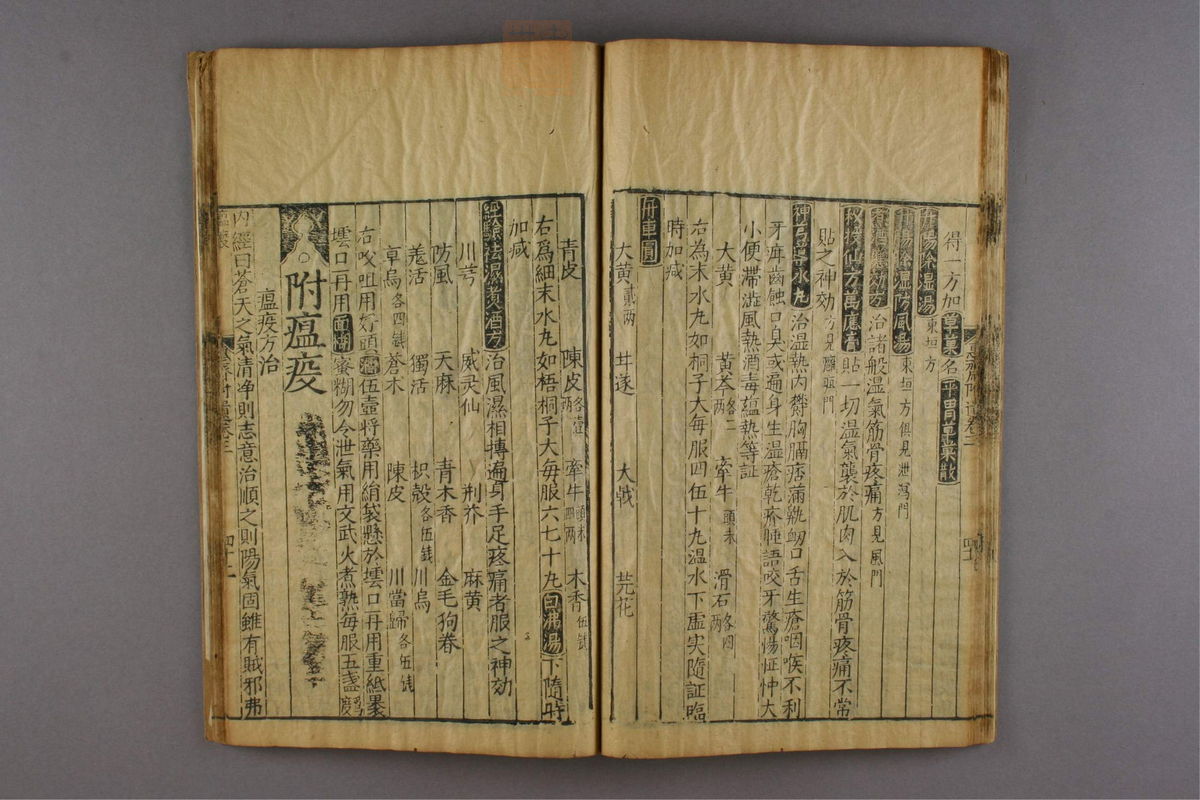 得一方加草菓名平胃草菓散
升陽除湿湯東垣方
升陽除湿防風湯東垣方俱見泄瀉門
治諸般湿氣筋骨疼痛方見風門
秘授仙方萬應膏貼一切湿氣襲於肌肉入於筋骨疼痛不常
貼之神効方見癰疽門
神芎導水丸治湿熱内欎胸膈痞滿熱䘐口舌生瘡咽喉不利
牙疼齒蝕口臭或遍身生湿瘡乾疥睡語咬牙驚惕怔忡大
小便滞澁風熱酒毒蕴熱等証
大黄 黄芩各二两 牽牛頭末 滑石各四两
右為末水丸如桐子大每服四伍十九温水下虚实隨証臨
時加减
舟車圓
大黄貳两 甘遂 大戟 芫花
青皮 陳皮各壹两 牽牛頭末四两 木香伍錢
右為細末水丸如梧桐子大每服六七十九白沸湯下隨時
加减
經驗祛濕煮酒方治風濕相摶遍身手足疼痛者服之神効
川芎 威灵仙 荆芥 麻黄
防風 天麻 青木香 金毛狗脊
羗活 獨活 枳殼各伍錢 川烏
草烏各四錢 蒼术 陳皮 川當歸各伍錢
右㕮咀用好頭酒伍壺將藥用絹袋懸於壜口再用重紙墨
壜口再用面糊蜜糊勿令泄氣用文武火煮熟每服五盞爲度
附瘟疫
瘟疫方治
内經曰蒼天之氣清净則志意治順之則陽氣固雖有賊邪弗